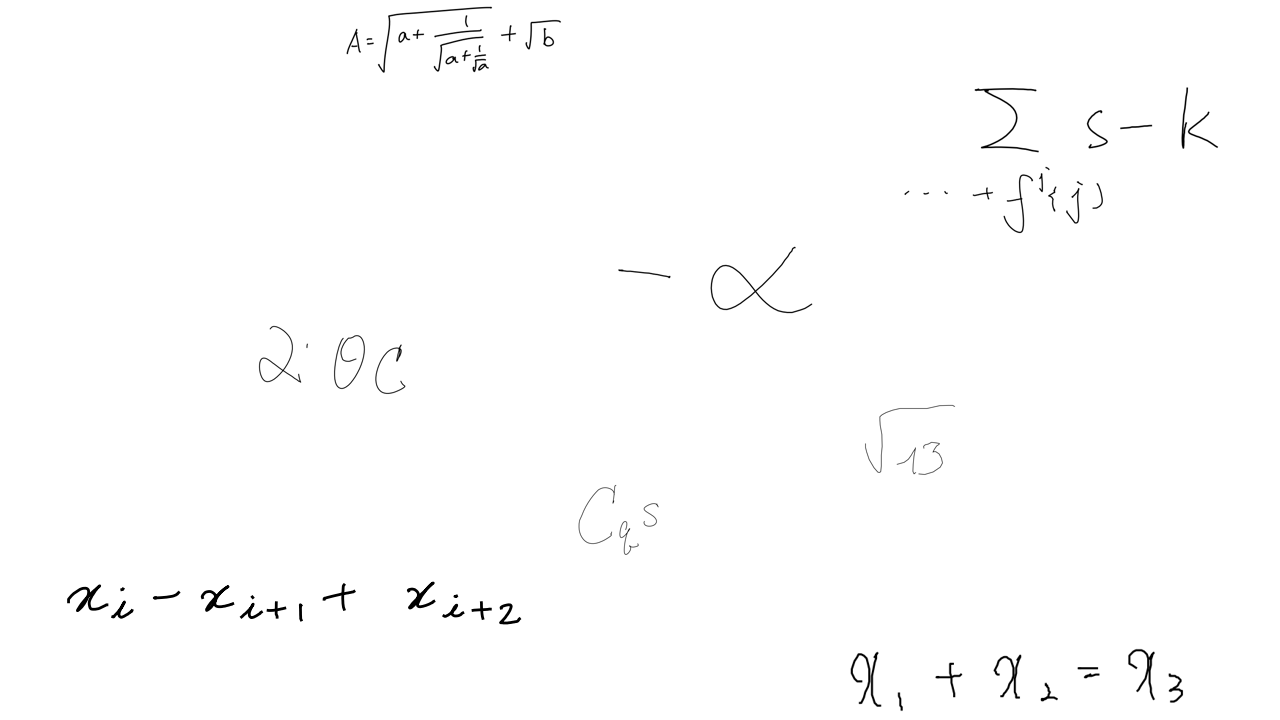 A=√(a+1/√(a+1/√a))+√b
∑ s-k
⋯+f^j{j)
-α
2·θC
√13
C_q s
x_i-x_{i+1}+x_{i+2}
x_1+x_2=x_3